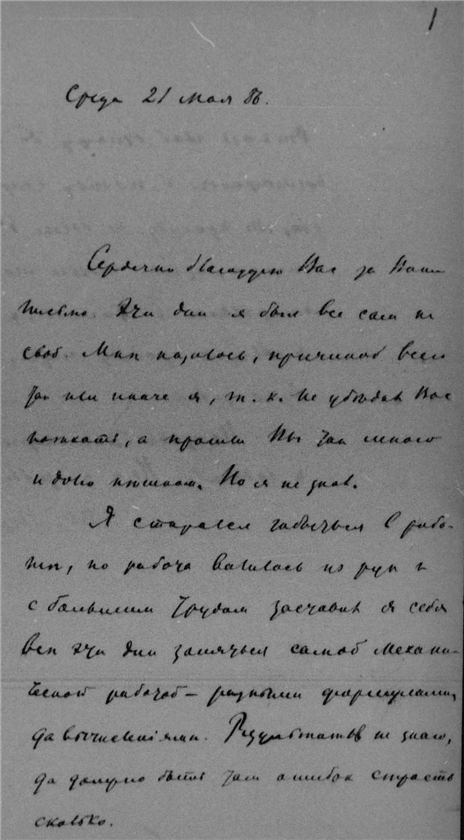 1
Среда 21 мая 86.
Сердечно благодарю Вас за Ваше
письмо эти дни я был все сам не
свой. Мне казалось, причиной всего
так или иначе я, т. к. не убѣдил Вас
а прошли Вы так много
и долго пѣшком. Но я не знал.
Я старался забыться в рабо-
тѣ, но работа валилась из рук и
с большим трудом заставил я себя
всѣ эти дни заняться самой механи-
ческой работой – разными формулами,
да вычисленіями. Результатов не знаю,
да должно быть там ошибок страсть
сколько.